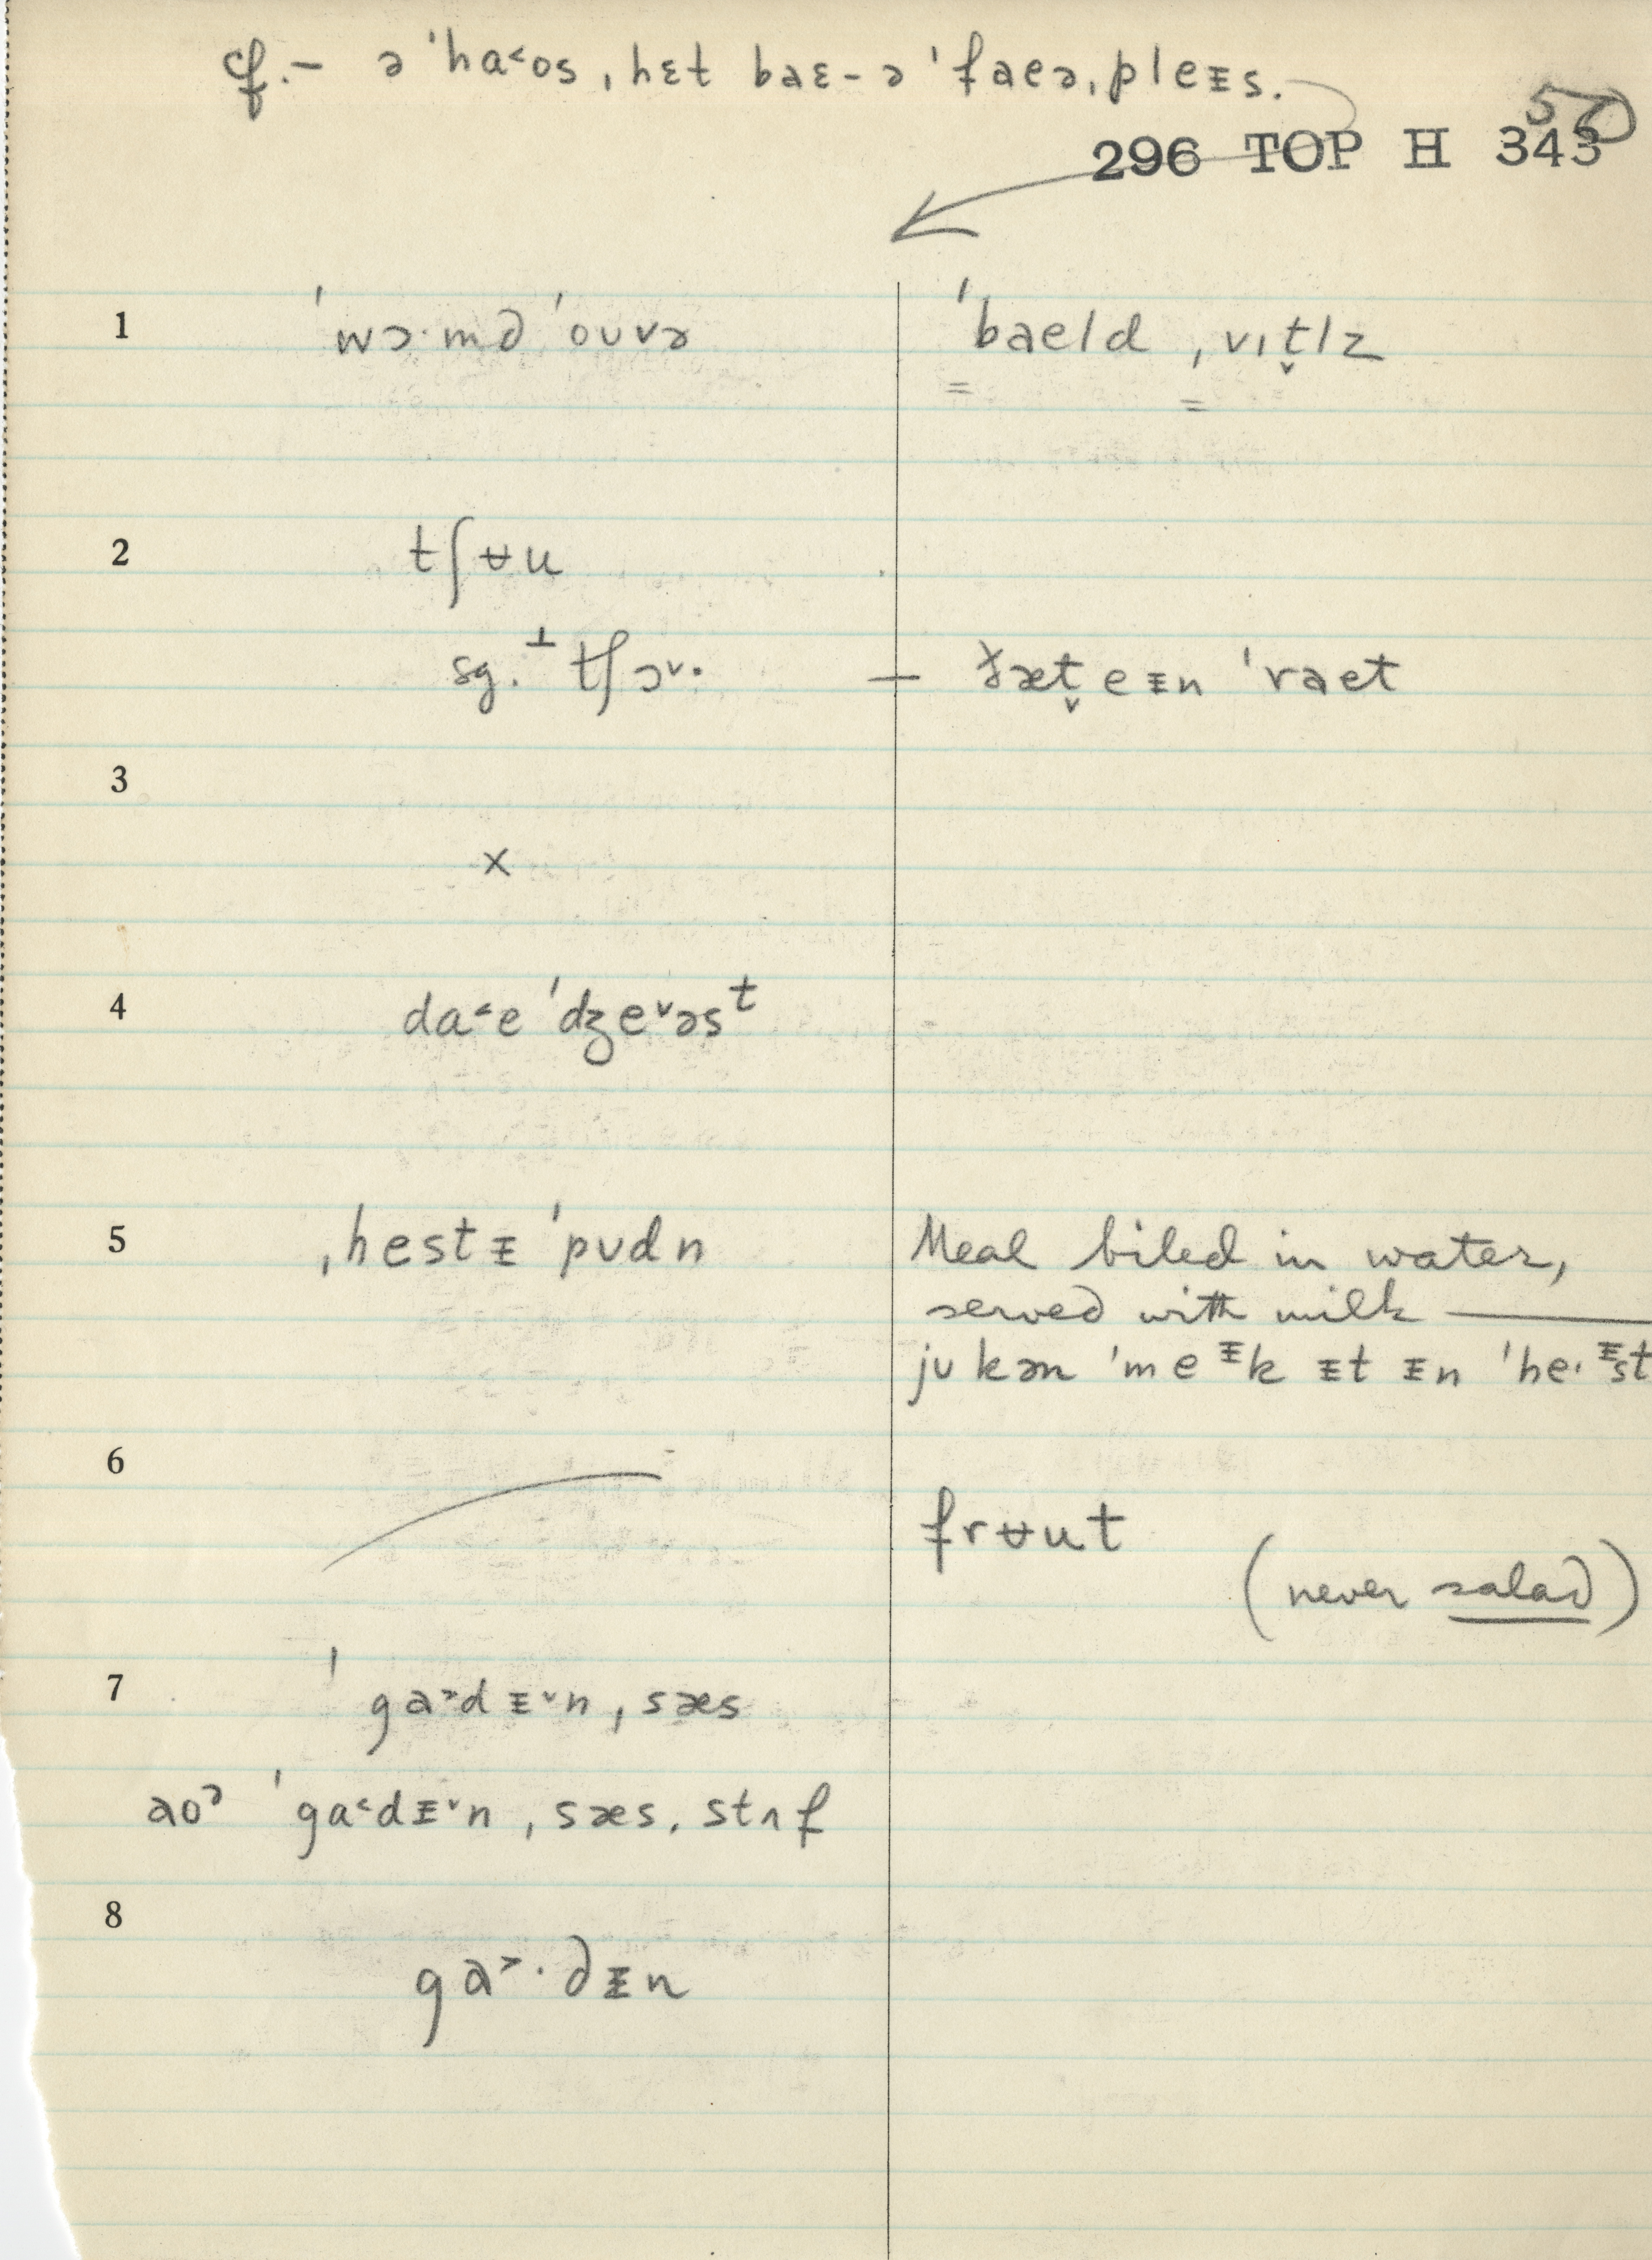 cf.– ə ˈha˂os, hɛt baɛ- ə ˈfaeə, pleᵻs.
50
296 TOP H 343
1 ˈwɔ·md ˈoʊvə ˈbaeld ˌvɪt̬lz
2 tʃʉu
sg. ⊥ tʃɔ˅· — ðæt̬ eᵻn ˈraet
3
×
4 da˂e ˈdʒe˅əsᵗ
5 ˌhestᵻ ˈpʊdn Meal biled in water,
served with milk —
jʊ kən ˈmeᵻk ᵻt ᵻn ˈhe·ᵻst
6 frʉut
(never salad)
7 ˈga˃dᵻ˅n ˌsæs
aoɔ ˈga˂dᵻ˅n ˌsæs, stʌf
8
ga˃·dᵻn